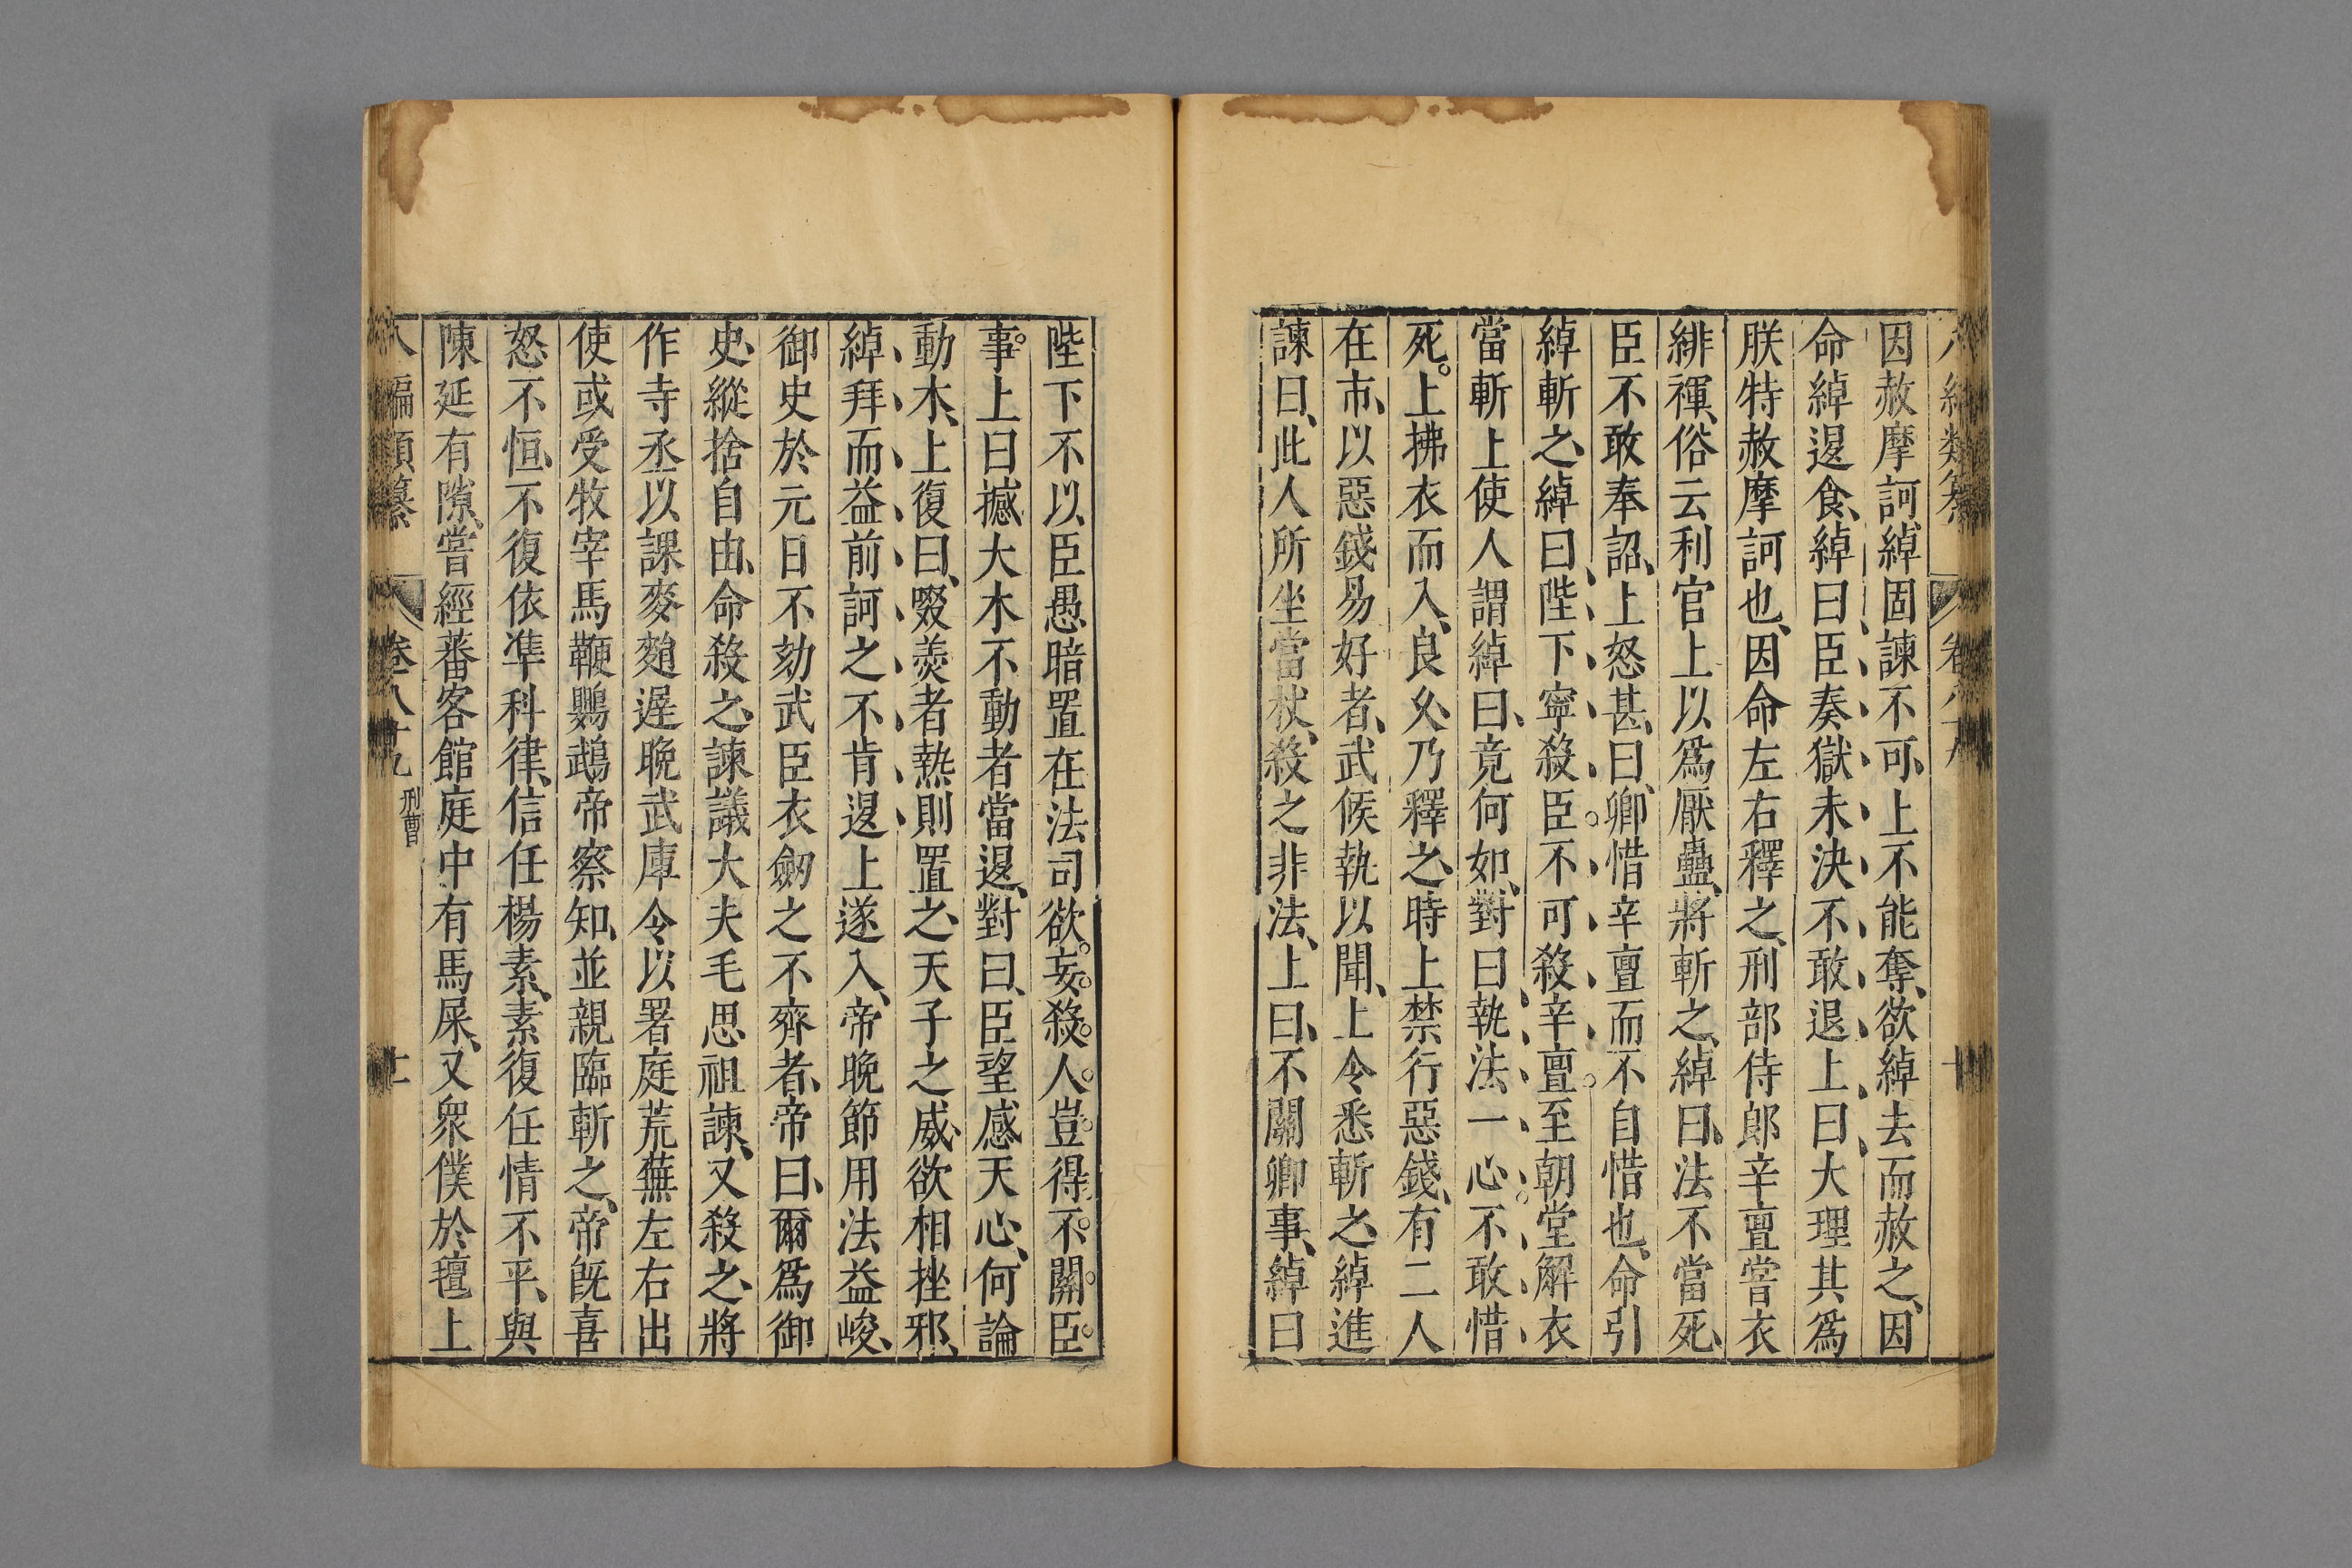 因赦摩訶綽固諫不可、上不能奪、欲綽去而赦之、因
命綽退食、綽曰、臣奏獄未決、不敢退、上曰、大理其爲
朕特赦摩訶也、因命左右釋之、刑部侍郎辛亶嘗衣
緋褌、俗云利官、上以爲厭蠱、將斬之、綽曰、法不當死、
臣不敢奉詔、上怒甚、曰、卿惜辛亶而不自惜也、命引
綽斬之、綽曰、陛下寧殺臣、不可殺辛亶。至朝堂解衣
當斬、上使人謂綽曰、竟何如、對曰、執法一心、不敢惜
死。上拂衣而入、良久乃釋之、時上禁行惡錢、有二人
在市、以惡錢易好者、武候執以聞、上令悉斬之、綽進
諫曰、此人所坐當杖、殺之非法、上曰、不關卿事、綽曰
陛下不以臣愚暗置在法司欲。妄。殺。人。豈。得。不。關。臣。
事。上曰、撼大木不動者當退、對曰、臣望感天心、何論
動木、上復曰、啜羹者熱則置之、天子之威、欲相挫邪、
綽拜而益前、訶之不肯退、上遂入、帝晚節用法益峻、
御史於元日不劾武臣衣劒之不齊者、帝曰、爾爲御
史、縱捨自由、命殺之、諫議大夫毛思祖諫、又殺之、將
作寺丞以課麥䴬遲晚、武庫令以署庭荒蕪、左右出
使、或受牧宰馬鞭鸚鵡、帝察知、並親臨斬之、帝既喜
怒不恒、不復依準科律、信任楊素、素復任情不平、與
陳延有隙、嘗經蕃客館、庭中有馬屎、又衆僕於氊上
八編類纂　卷八十九 刑曹　十一